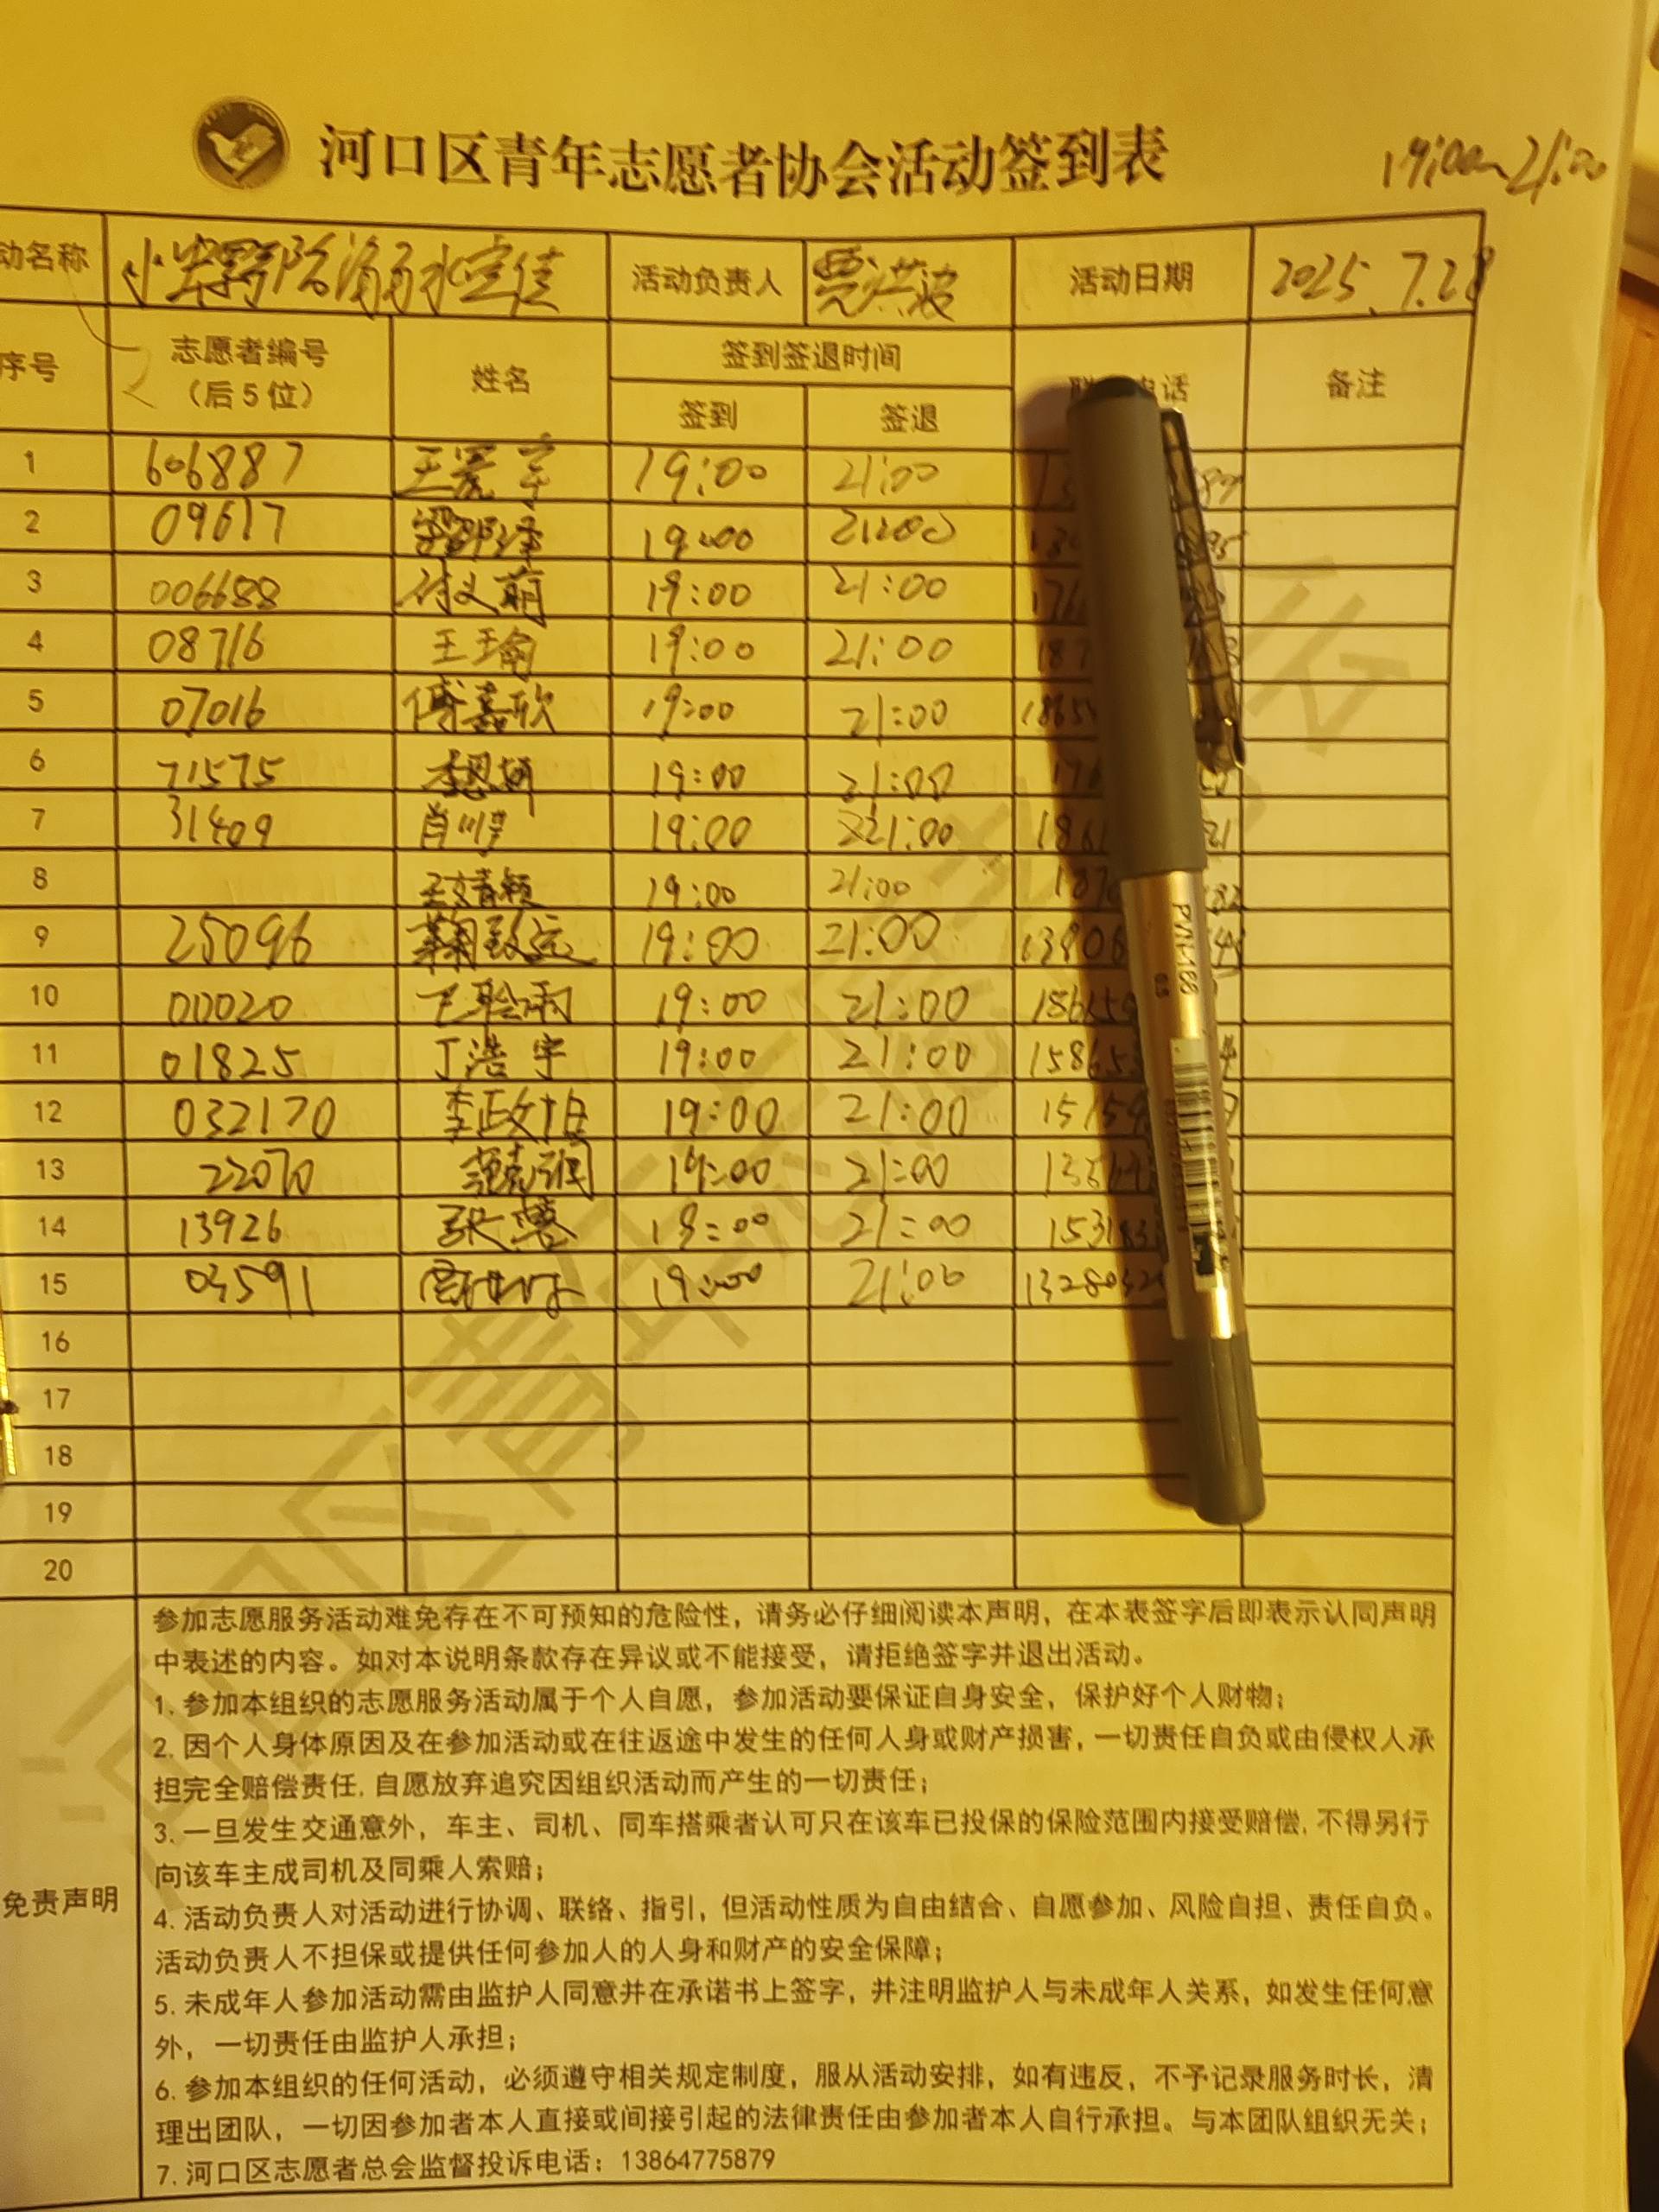 河口区青年志愿者协会活动签到表
19:00~21:00
动名称 活动负责人 贾洪波 活动日期 2025.7.28
序号 志愿者编号 (后5位) 姓名 签到签退时间 电话 备注
签到 签退
1 606887 19:00 21:00
2 09617 19:00 21:00
3 006688 19:00 21:00
4 08716 王瑜 19:00 21:00
5 07016 傅嘉欣 19:00 21:00 1865
6 71575 19:00 21:00
7 31409 19:00 21:00
8 19:00 21:00
9 25096 19:00 21:00 13806
10 00020 19:00 21:00
11 01825 丁浩宇 19:00 21:00
12 032170 19:00 21:00
13 22070 19:00 21:00
14 13926 19:00 21:00
15 03591 19:00 21:00
16
17
18
19
20
免责声明
参加志愿服务活动难免存在不可预知的危险性，请务必仔细阅读本声明，在本表签字后即表示认同声明
中表述的内容。如对本说明条款存在异议或不能接受，请拒绝签字并退出活动。
1. 参加本组织的志愿服务活动属于个人自愿，参加活动要保证自身安全，保护好个人财物；
2. 因个人身体原因及在参加活动或在往返途中发生的任何人身或财产损害，一切责任自负或由侵权人承
担完全赔偿责任，自愿放弃追究因组织活动而产生的一切责任；
3. 一旦发生交通意外，车主、司机、同车搭乘者认可只在该车已投保的保险范围内接受赔偿，不得另行
向该车主成司机及同乘人索赔；
4. 活动负责人对活动进行协调、联络、指引，但活动性质为自由结合、自愿参加、风险自担、责任自负。
活动负责人不担保或提供任何参加人的人身和财产的安全保障；
5. 未成年人参加活动需由监护人同意并在承诺书上签字，并注明监护人与未成年人关系，如发生任何意
外，一切责任由监护人承担；
6. 参加本组织的任何活动，必须遵守相关规定制度，服从活动安排，如有违反，不予记录服务时长，清
理出团队，一切因参加者本人直接或间接引起的法律责任由参加者本人自行承担。与本团队组织无关；
7. 河口区志愿者总会监督投诉电话：13864775879